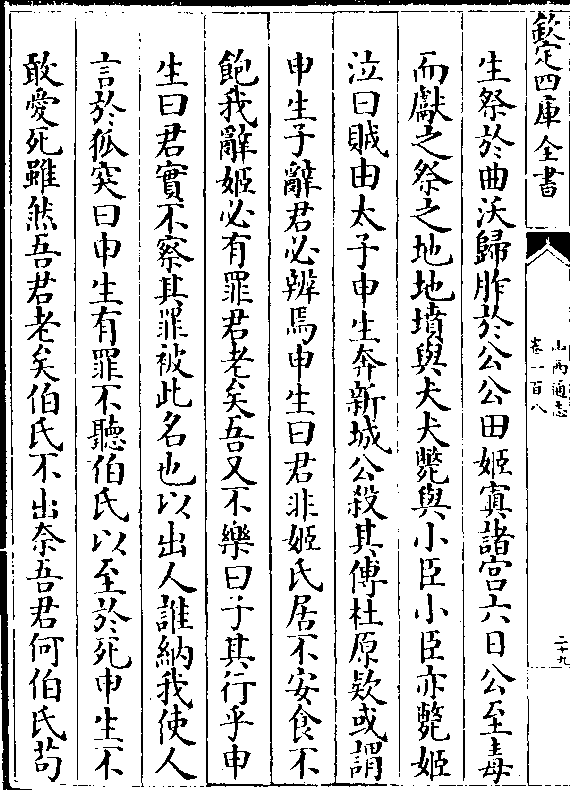 欽定四庫全書
山西通志
卷一百八
二十九
生祭於曲沃歸胙於公公田姬寘諸宫六日公至毒
而獻之祭之地地墳與犬犬斃與小臣小臣亦斃姬
泣曰賊由太子申生奔新城公殺其傅杜原欵或謂
申生子辭君必辨焉申生曰君非姬氏居不安食不
飽我辭姬必有罪君老矣吾又不樂曰子其行乎申
生曰君實不察其罪被此名也以出人誰納我使人
言於狐突曰申生有罪不聽伯氏以至於死申生不
敢愛死雖然吾君老矣伯氏不出奈吾君何伯氏茍